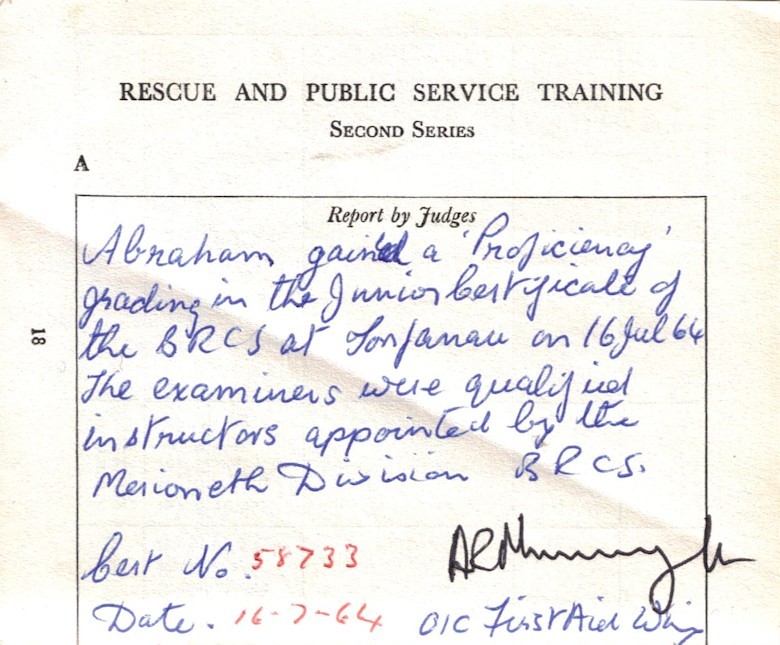 RESCUE AND PUBLIC SERVICE TRAINING
SECOND SERIES
A
Report by Judges
Abraham gained a 'Proficiency'
grading in the Junior Certificate of
the BRCS at Tonfanau on 16 Jul 64
The examiners were qualified
instructors appointed by the
Merioneth Division BRCS.
18
Cert No. 58733
Date. 16-7-64 OIC First Aid Wing